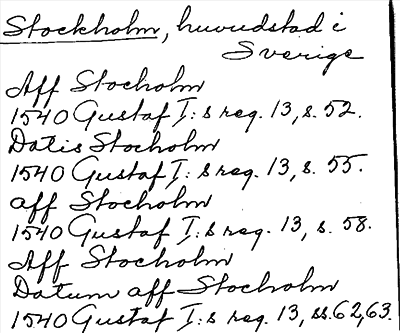 Stockholm, huvudstad i
Sverige
Aff Stocholm
1540 Gustaf I:s reg. 13, s. 52.
Datis Stocholm
1540 Gustaf I:s reg. 13, s. 55.
aff Stocholm
1540 Gustaf I:s reg. 13, s. 58.
Aff Stocholm
Datum aff Stocholm
1540 Gustaf I:s reg. 13, ss. 62, 63.